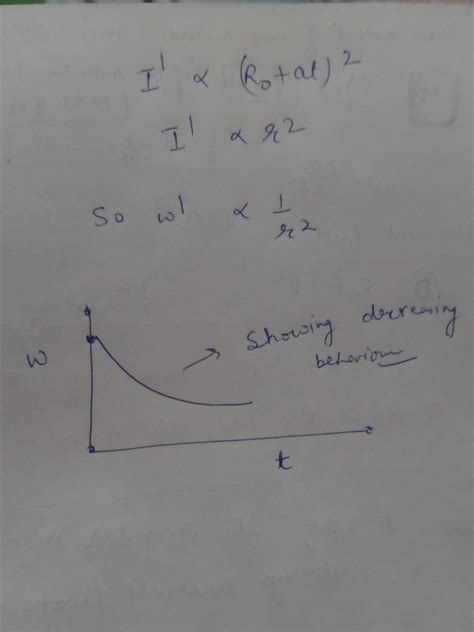 I' ∝ (R₀+at)²
I' ∝ r²
So w' ∝ 1/r²
w
Showing decreasing
behaviour
t